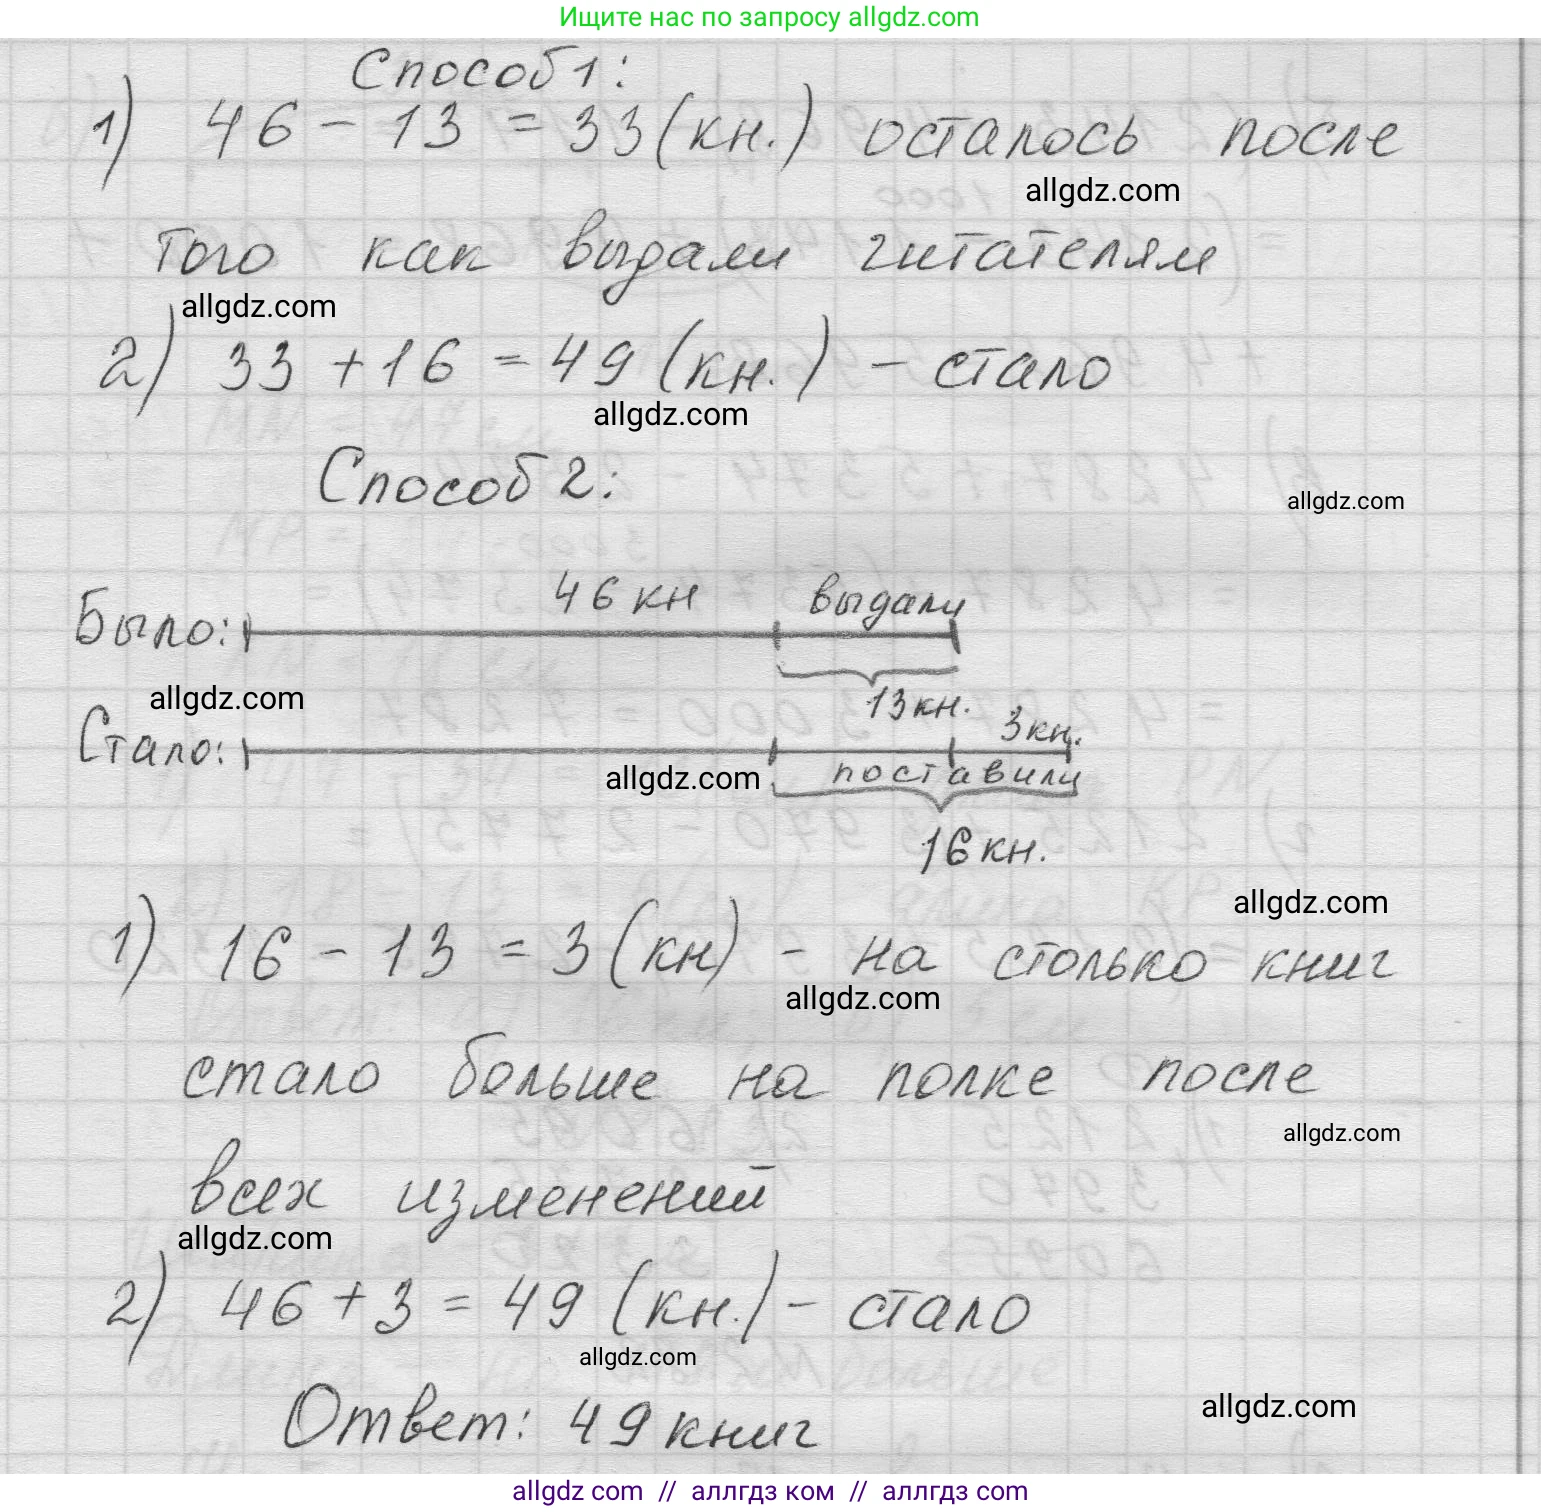 Ищите нас по запросу allgdz.com
Способ 1:
1) 46 - 13 = 33 (кн.) осталось после
allgdz.com
того как выдали читателям
allgdz.com
2) 33 + 16 = 49 (кн.) - стало
allgdz.com
Способ 2:
allgdz.com
46 кн выдали
Было:
13 кн.
allgdz.com
3 кн.
Стало:
поставили
allgdz.com
16 кн.
allgdz.com
1) 16 - 13 = 3 (кн) - на столько книг
allgdz.com
стало больше на полке после
allgdz.com
всех изменений
allgdz.com
2) 46 + 3 = 49 (кн.) - стало
allgdz.com
Ответ: 49 книг
allgdz.com
allgdz com // аллгдз ком // аллгдз com